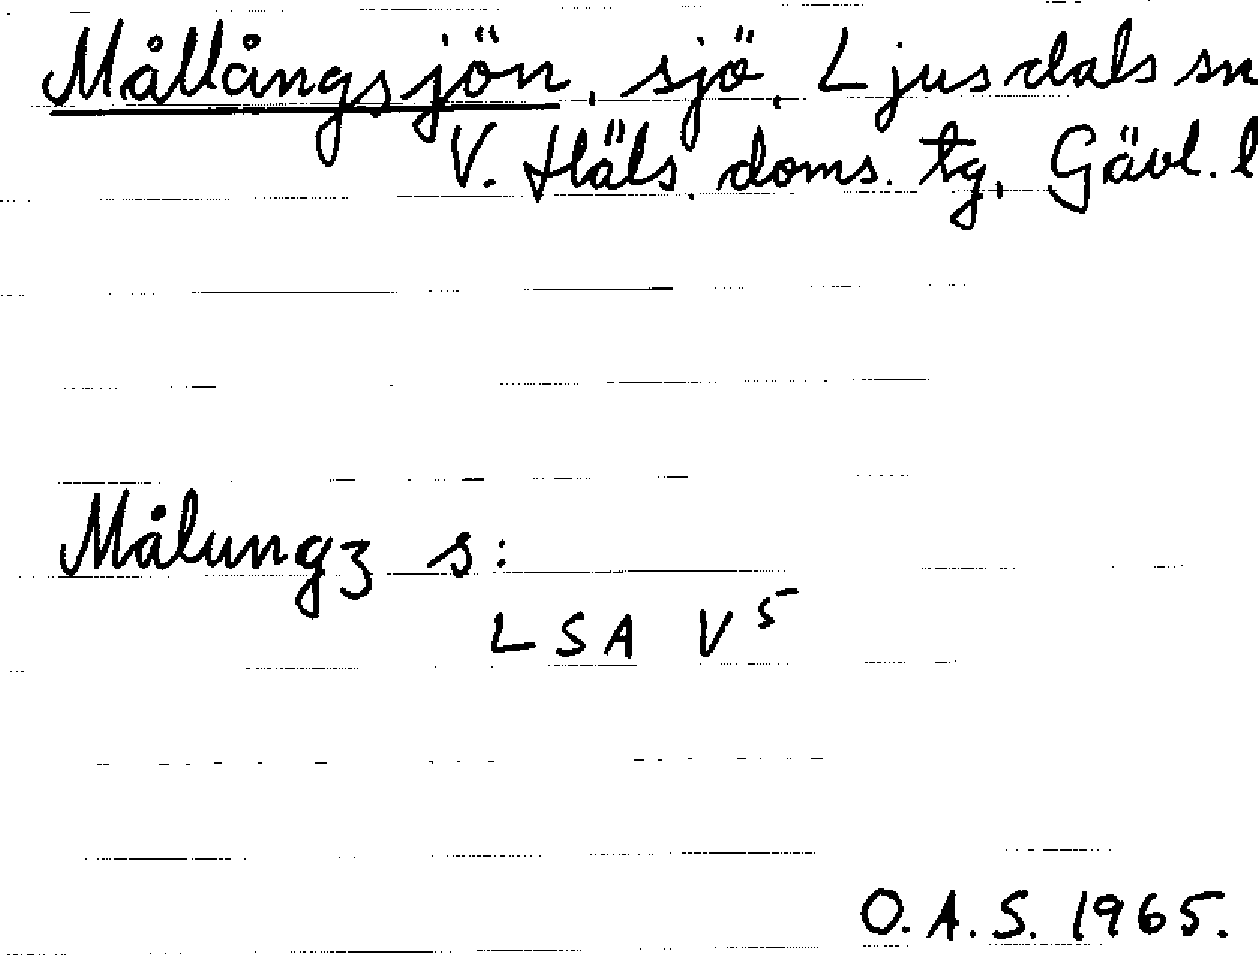 Mållångsjön, sjö, Ljusdals sn
V. Häls. doms. tg, Gävl. l
Målungz s:
LSA V⁵
O.A.S. 1965.